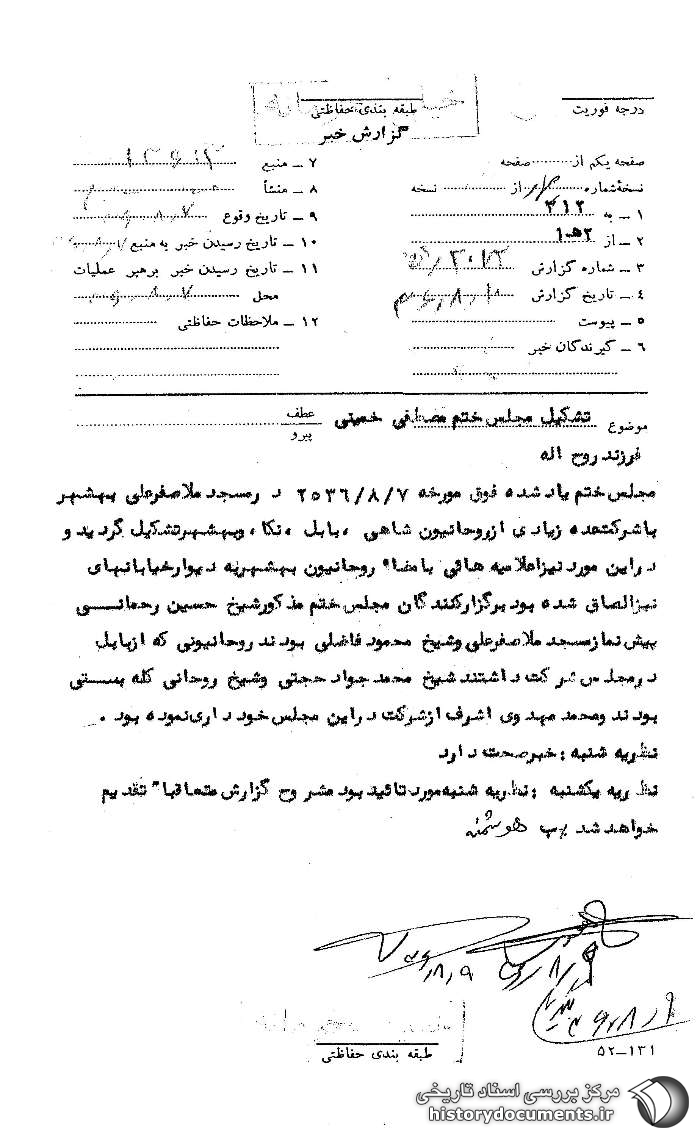 طبقه بندی حفاظتی
گزارش خبر
درجه فوریت
صفحه یکم از صفحه
نسخهٔ شماره از نسخه
۱ ـ به ۳۱۲
۲ ـ از ۲ه‍۱۰
۳ ـ شماره گزارش
۴ ـ تاریخ گزارش ۳۶٫۸٫۱۰
۵ ـ پیوست
۶ ـ گیرندگان خبر
۷ ـ منبع
۸ ـ منشأ
۹ ـ تاریخ وقوع
۱۰ ـ تاریخ رسیدن خبر به منبع
۱۱ ـ تاریخ رسیدن خبر برهبر عملیات
محل
۱۲ ـ ملاحظات حفاظتی
موضوع تشکیل مجلس ختم مصطفی خمینی
فرزند روح اله
عطف
پیرو
مجلس ختم یاد شده فوق مورخه ۲۵۳۶/۸/۷ در مسجد ملاصفرعلی بهشهر
باشرکت عده زیادی از روحانیون شاهی ، بابل ، نکا ، وبهشهر تشکیل گردید و
در این مورد نیز اعلامیه هائی بامضاء روحانیون بهشهر به دیوار خیابانهای
نیز الصاق شده بود برگزارکنندگان مجلس ختم مذکور شیخ حسین رحمانی
پیش نماز مسجد ملاصفرعلی وشیخ محمود فاضلی بودند روحانیونی که از بابل
در مجلس شرکت داشتند شیخ محمد جواد حجتی وشیخ روحانی کله بستی
بودند ومحمد مهدوی اشرف از شرکت در این مجلس خود داری نموده بود .
نظریه شنبه : خبر صحت دارد
نظریه یکشنبه : نظریه شنبه مورد تائید بود مشروح گزارش متعاقبا" تقدیم
خواهد شد
طبقه بندی حفاظتی
۵۲ـ۱۳۱
مرکز بررسی اسناد تاریخی
historydocuments.ir